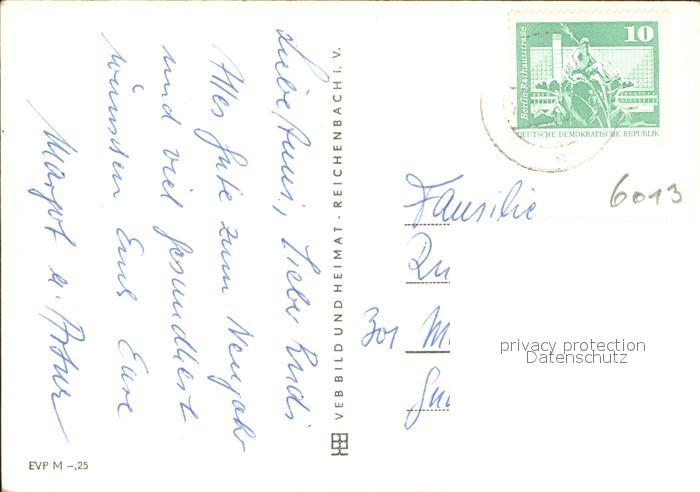 Liebe Anni, Lieber Rudi
Alles Gute zum Neujahr
und viel Gesundheit
wünschen Euch Eure
Margot u. Artur
VEB BILD UND HEIMAT - REICHENBACH i. V.
EVP M –,25
10
Berlin-Rathausstraße
DEUTSCHE DEMOKRATISCHE REPUBLIK
6013
Familie
301 M
privacy protection
Datenschutz